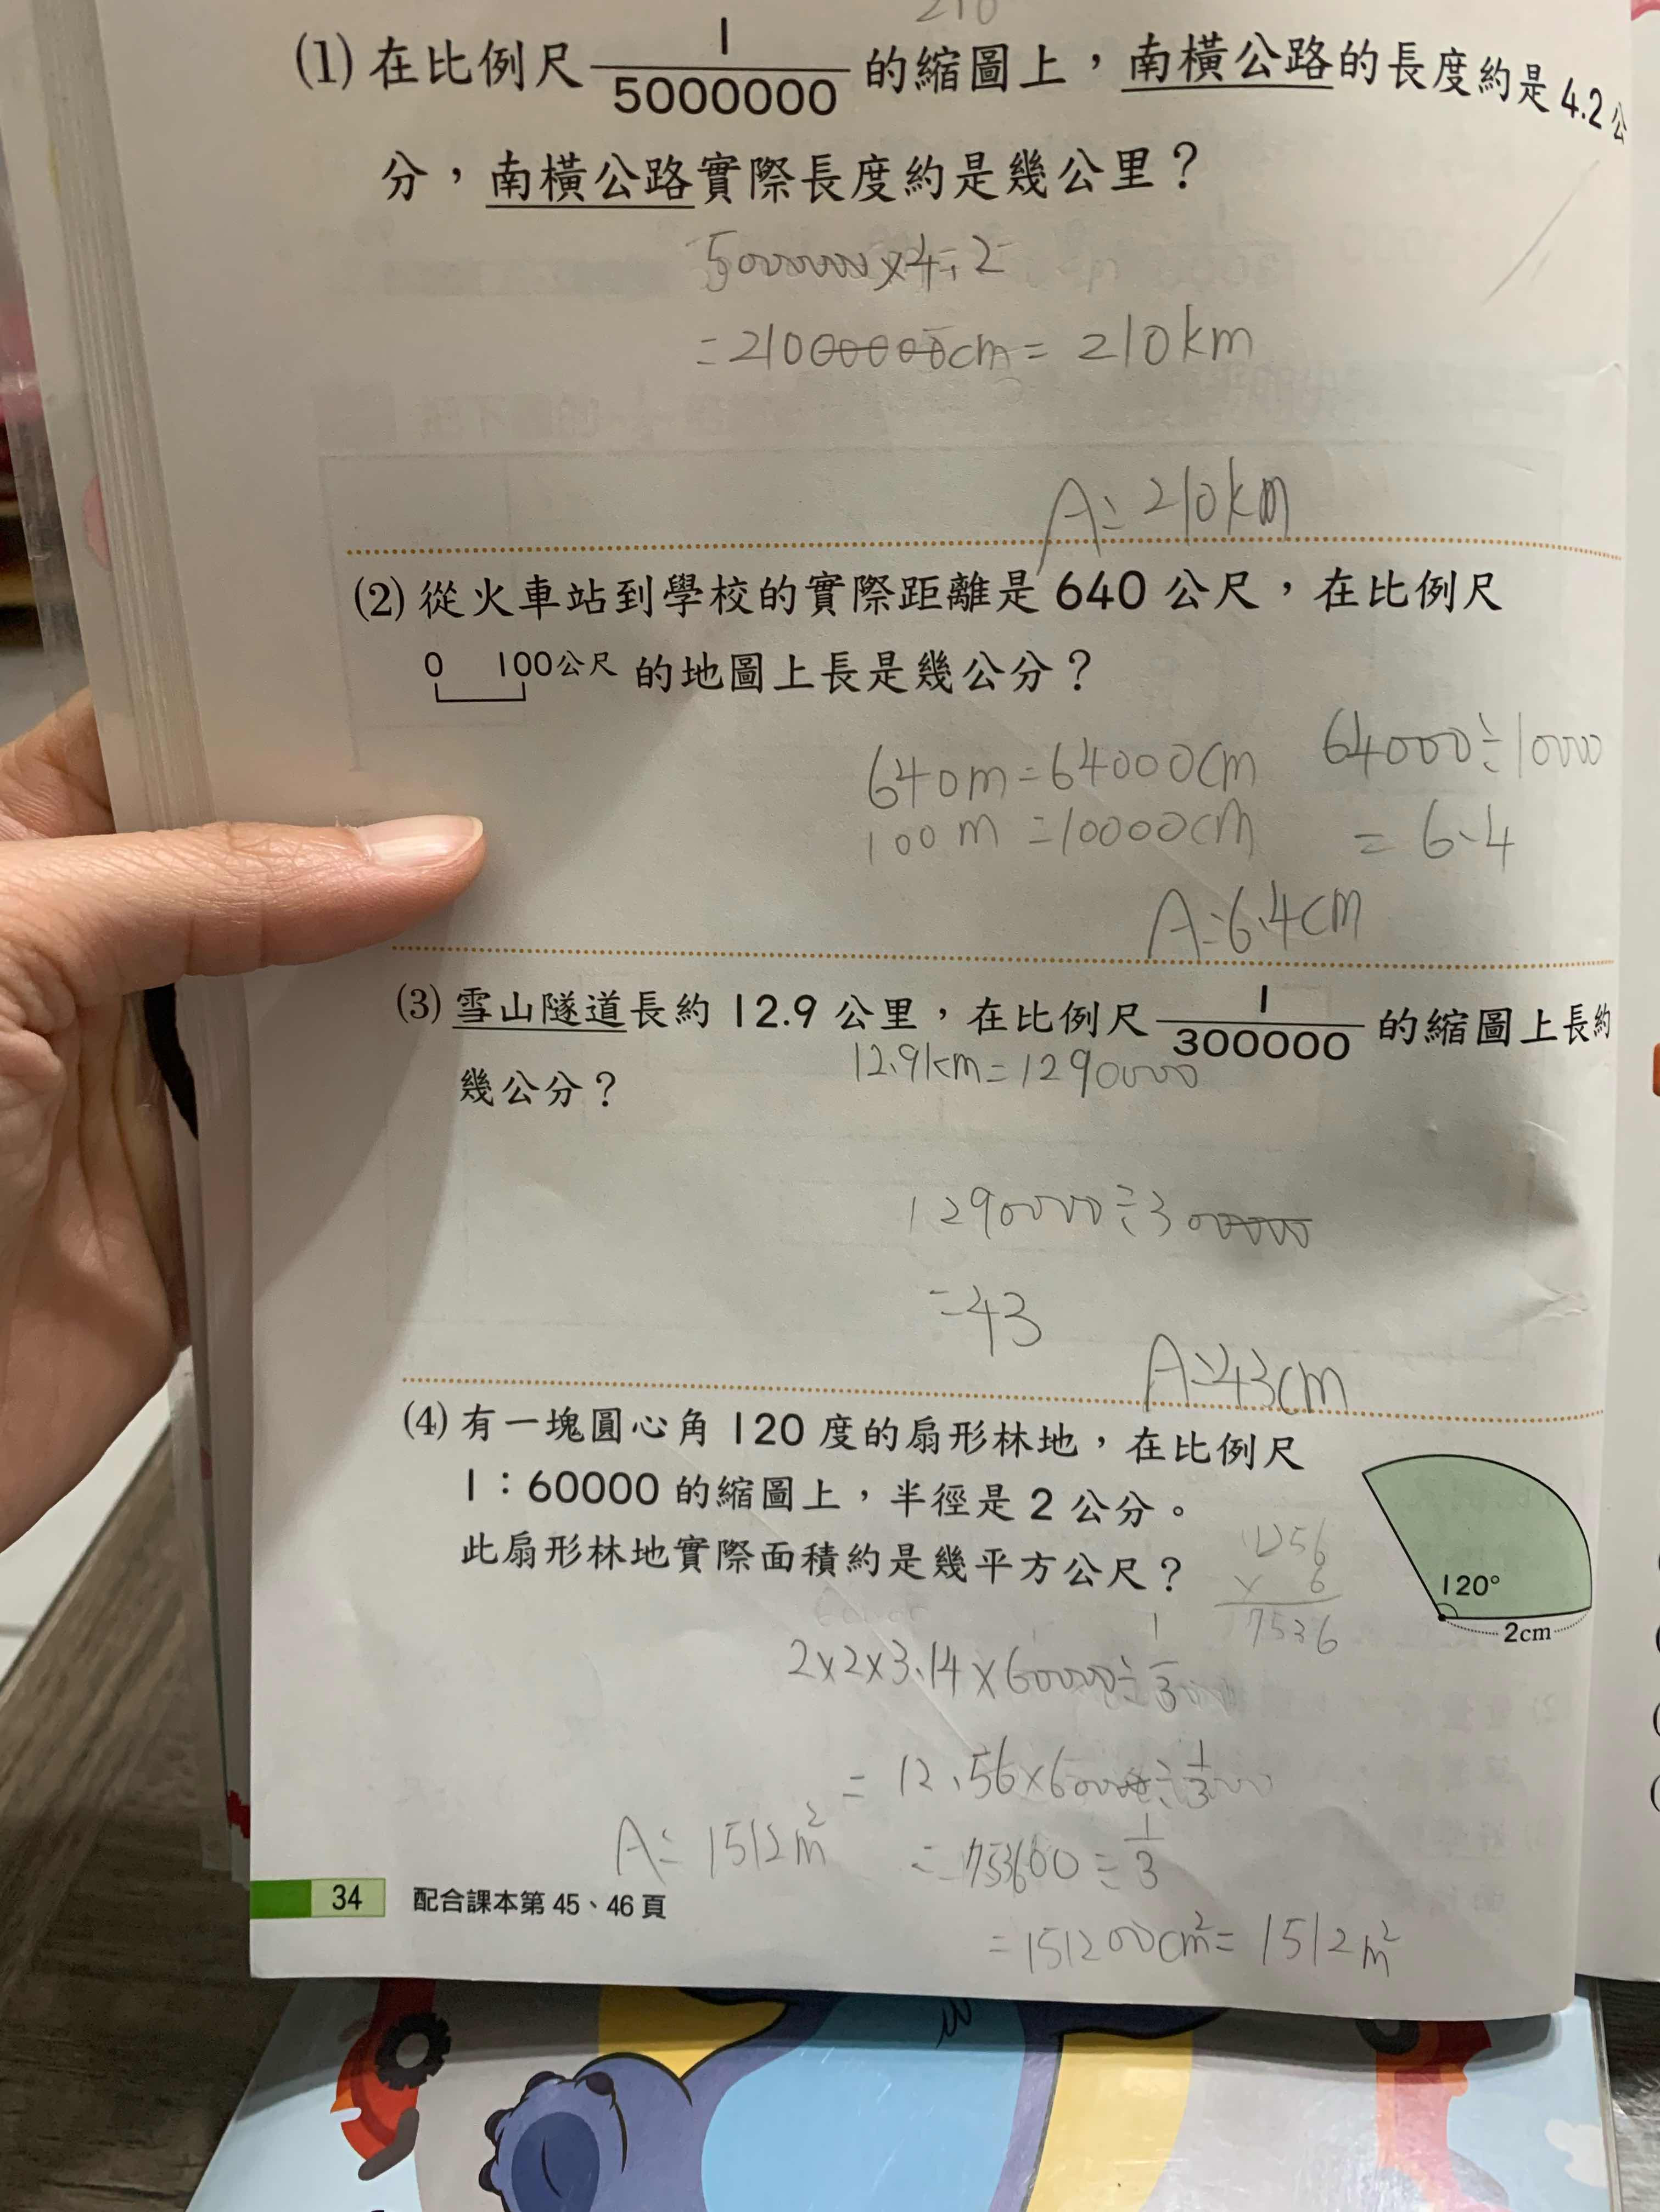 (1) 在比例尺 1/5000000 的縮圖上，南橫公路的長度約是 4.2 公
分，南橫公路實際長度約是幾公里？
5000000×4.2
=21000000cm= 210km
A：210km
(2) 從火車站到學校的實際距離是 640 公尺，在比例尺
0 100公尺 的地圖上長是幾公分？
640m=64000cm 64000÷10000
100m=10000cm = 6.4
A：6.4cm
(3) 雪山隧道長約 12.9 公里，在比例尺 1/300000 的縮圖上長約
12.9km=1290000
幾公分？
1290000÷300000
=43
A：43cm
(4) 有一塊圓心角 120 度的扇形林地，在比例尺
1：60000 的縮圖上，半徑是 2 公分。
此扇形林地實際面積約是幾平方公尺？
1256
× 6
7536
120°
2cm
2×2×3.14×60000÷1/3
= 12.56×60000÷1/3
= 753600÷1/3
A：1512m²
=151200cm²= 1512m²
34 配合課本第 45、46 頁